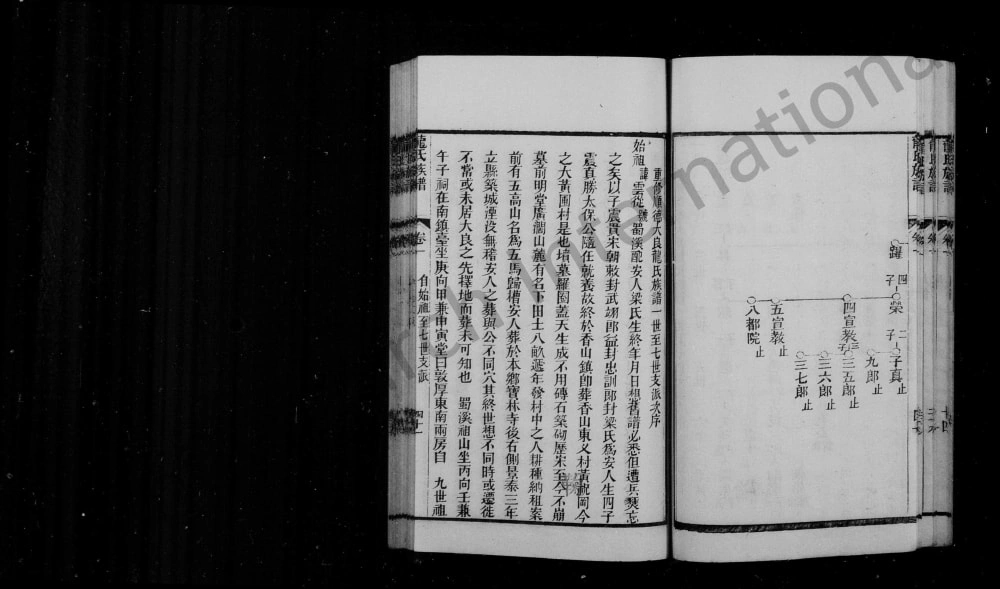 龍氏族譜
躍 四子
榮 二子
子真止
九郎止
四宣教三子
三五郎止
三六郎止
三七郎止
五宣教止
八都院止
重修順德大良龍氏族譜一世至七世支派次序
始祖諱雲從號蜀溪配安人梁氏生終年月日想舊譜必悉但遭兵燹忘
之矣以子震貴宋朝敕封武翊郎益封忠訓郎封梁氏為安人生四子
震直勝太保公隨任就養故終於香山鎮卽葬香山東乂村黃𤞑岡今
之大黃圃村是也墳墓羅圈蓋天生成不用磚石築砌歷宋至今不崩
墓前明堂廣濶山麓有名下田土八畝遞年發村中之人耕種納租案
前有五高山名為五馬歸槽安人葬於本鄉寶林寺後右側景泰三年
立縣築城湮没無稽安人之葬與公不同穴其終世想不同時或遷徙
不常或未居大良之先擇地而葬未可知也 蜀溪祖山坐丙向壬兼
午子祠在南鎮臺坐庚向甲兼申寅堂曰敦厚東南兩房自 九世祖
龍氏族譜 卷一 自始祖至七世支派 四十一